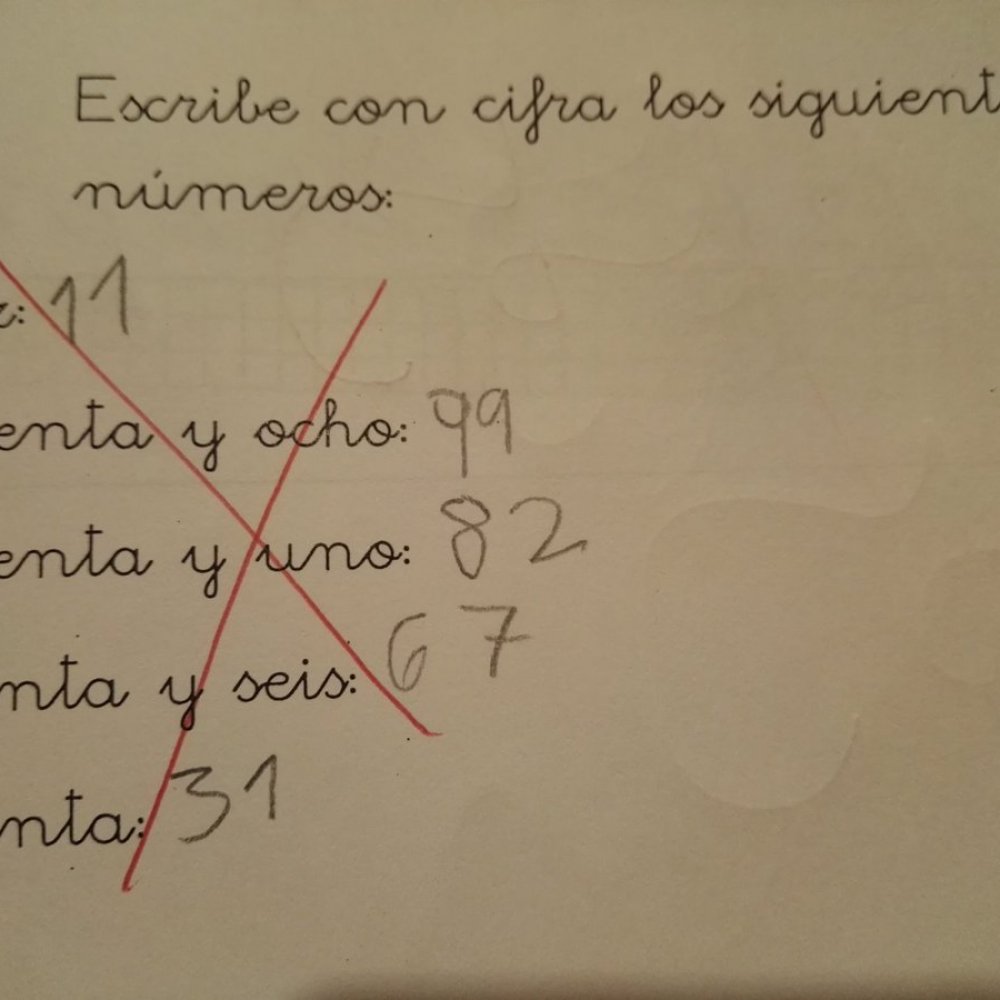 Escribe con cifra los siguient
números:
z: 11
enta y ocho: 99
enta y uno: 82
nta y seis: 67
nta: 31